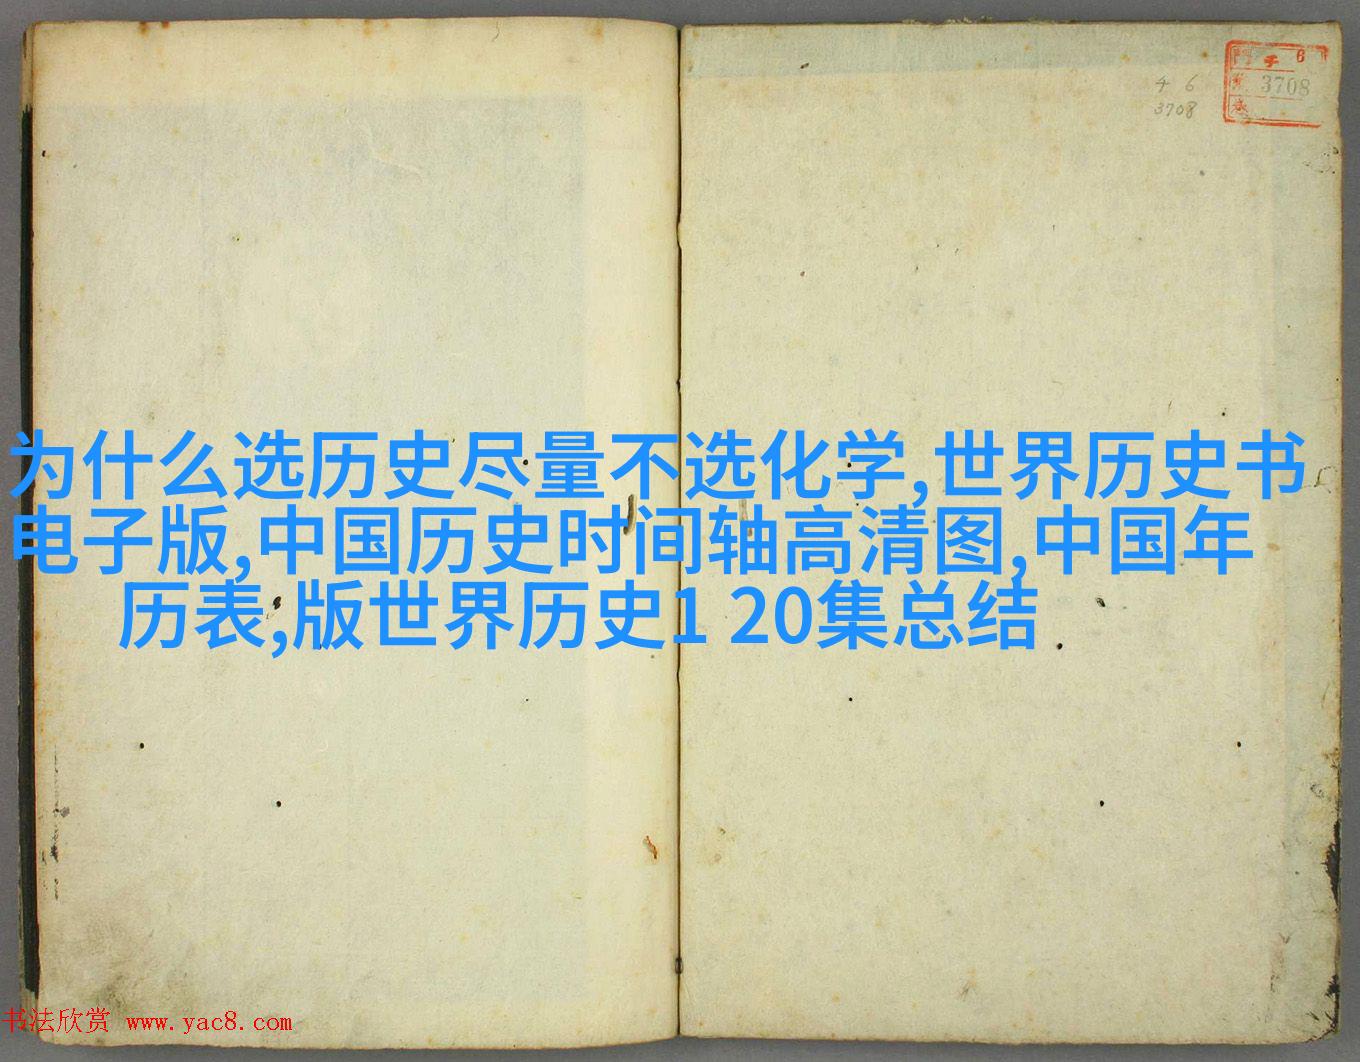 チ 6
3708
4 6
3708
为什么选历史尽量不选化学,世界历史书
电子版,中国历史时间轴高清图,中国年
历表,版世界历史1 20集总结
书法欣赏 www.yac8.com